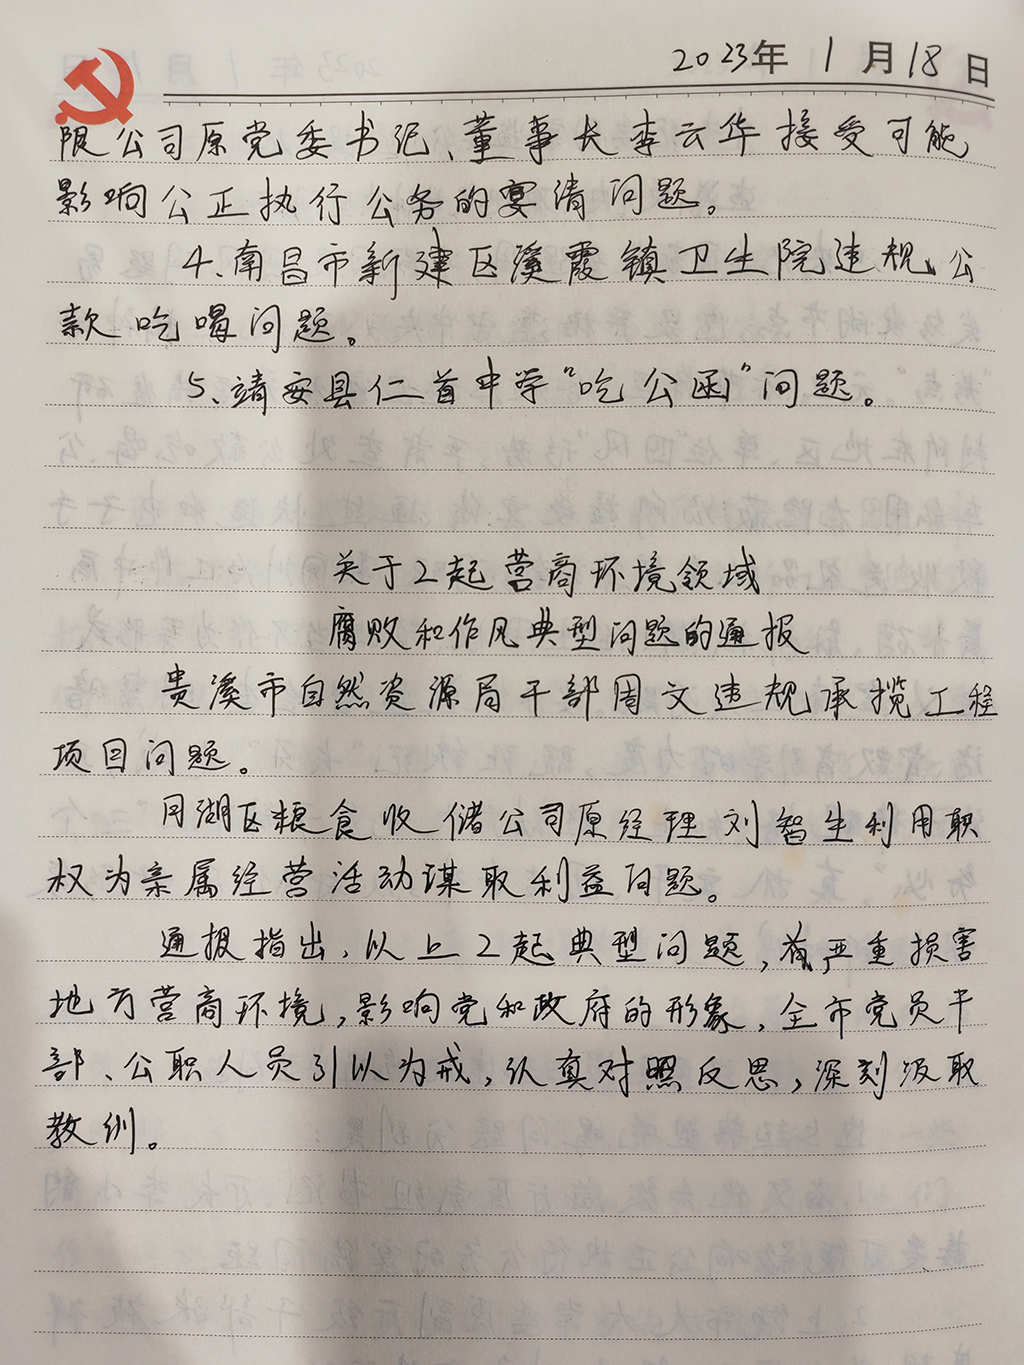 2023年 1月18日
限公司原党委书记、董事长李云华接受可能
影响公正执行公务的宴请问题。
4、南昌市新建区溪霞镇卫生院违规公
款吃喝问题。
5、靖安县仁首中学“吃公函”问题。
关于2起营商环境领域
腐败和作风典型问题的通报
贵溪市自然资源局干部周文违规承揽工程
项目问题。
月湖区粮食收储公司原经理刘智生利用职
权为亲属经营活动谋取利益问题。
通报指出,以上2起典型问题,严重损害
地方营商环境,影响党和政府的形象,全市党员干
部、公职人员引以为戒,认真对照反思,深刻汲取
教训。